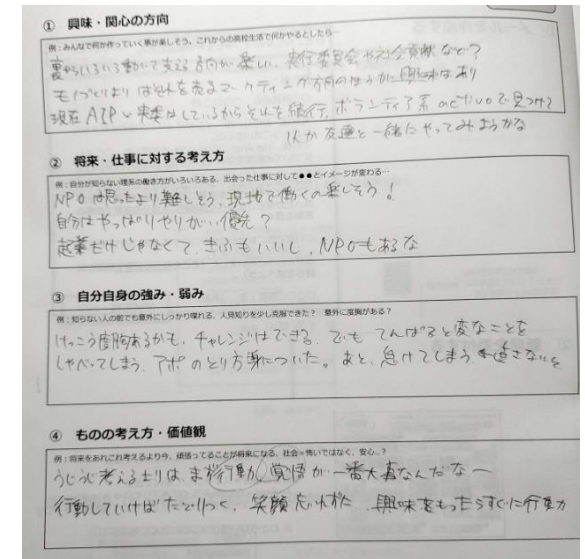 ① 興味・関心の方向
例：みんなで何か作っていく事が楽しそう。これからの高校生活で何かやるとしたら…
裏からいろいろ動いて支える方向が楽しい、実行委員会や社会貢献など？
モノづくりよりはそれを売るマーケティング方向のほうが興味はあり
現在AIPと実委はしているからそれを続行、ボランティア系activoで見つけて
1人か友達と一緒にやってみようかな
② 将来・仕事に対する考え方
例：自分が知らない理系の働き方がいろいろある、出会った仕事に対して●●とイメージが変わる…
NPOは思ったより難しそう、現地で働くの楽しそう！
自分はやっぱりやりがい優先？
起業だけじゃなくて、きふもいいし、NPOもあるな
③ 自分自身の強み・弱み
例：知らない人の前でも意外にしっかり喋れる、人見知りを少し克服できた？ 意外に度胸がある？
けっこう度胸あるかも、チャレンジはできる、でも てんぱると変なことを
しゃべってしまう、アポのとり方身についた。あと、怠けてしまう
④ ものの考え方・価値観
例：将来をあれこれ考えるより今、頑張ってることが将来になる、社会＝怖いではなく、安心…？
うじうじ考えるよりは、まず行動、覚悟が一番大事なんだなー
行動していけばたどりつく、笑顔忘れずに、興味をもったらすぐに行動